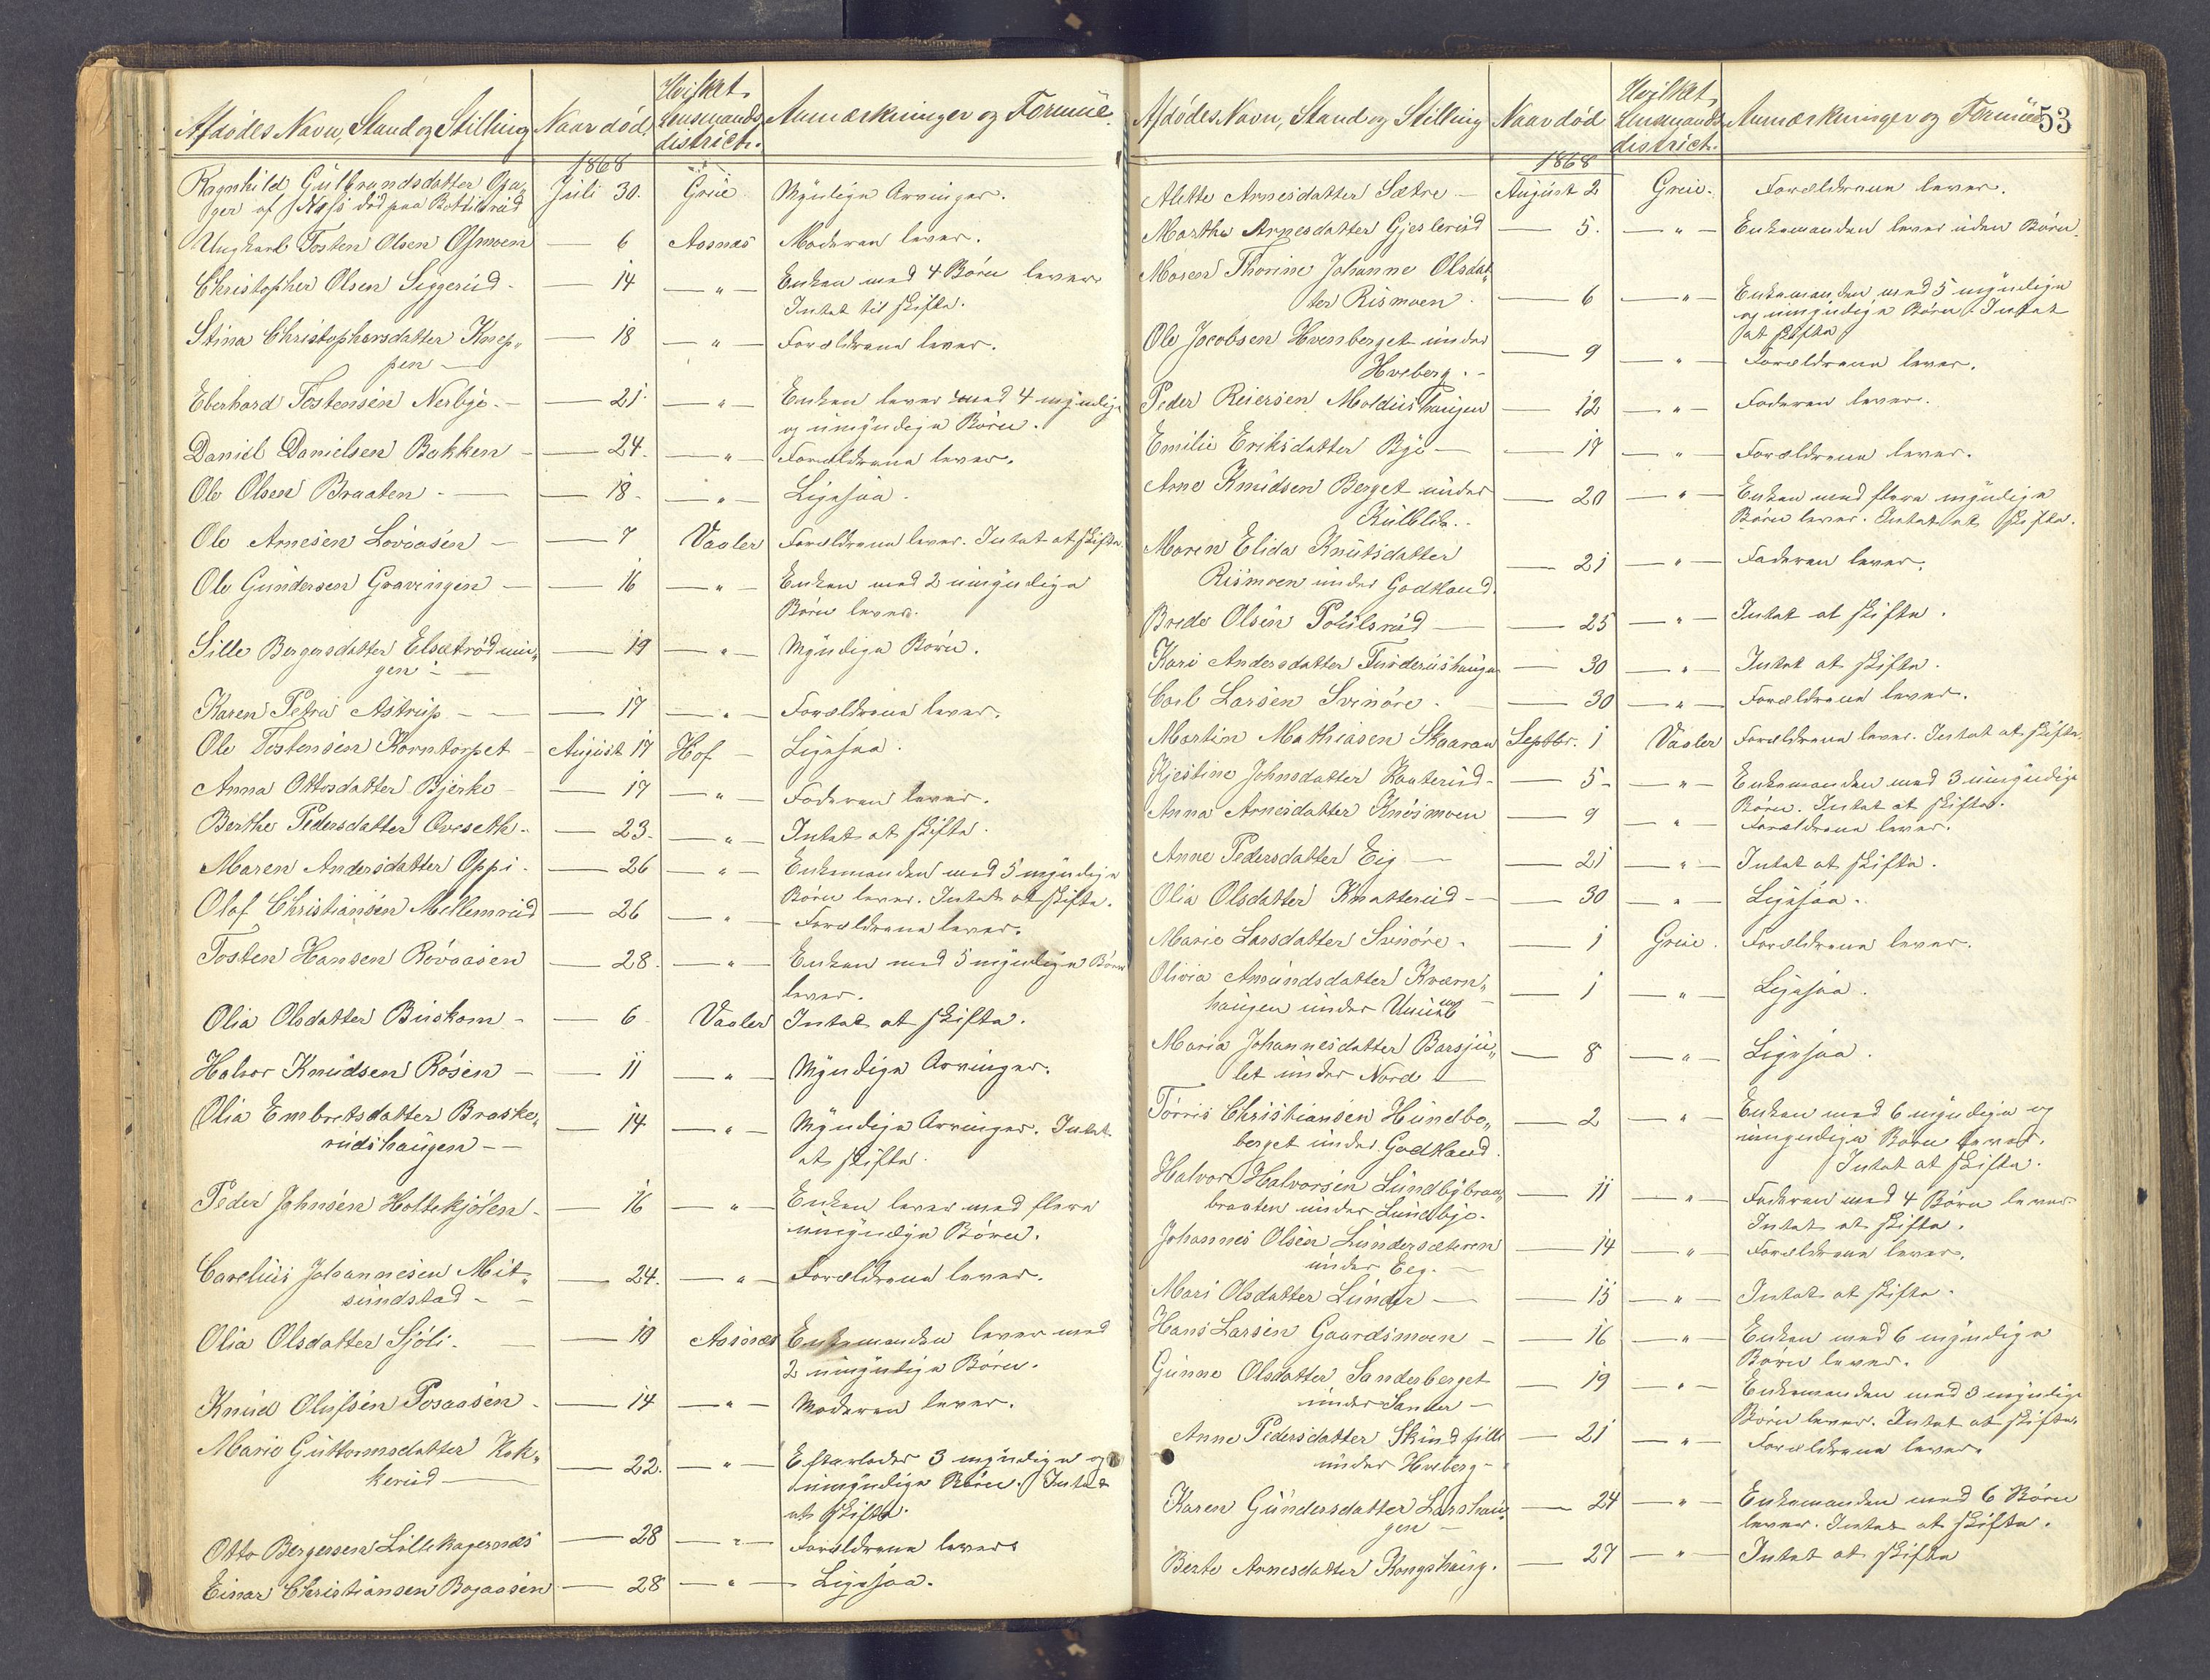 Afdødes Navn, Stand og Stilling Naar død Hvilket Lensmands district. Anmærkninger og Formue.
1868
Ragnhild Gulbrandsdatter Opa-
ger af Næs død paa Bottilsrud Juli 30. Grue Myndige Arvinger.
Ungkarl Tosten Olsen Osmoen — 6 Aasnæs Moderen lever.
Christopher Olsen Siggerud — 14 — " — Enken med 4 Børn lever
Intet til Skifte.
Stina Christophersdatter Knep-
pen — 18 — " — Forældrene lever.
Eberhard Tostensen Nerbye — 21 — " — Enken lever med 4 myndige
og umyndige Børn.
Daniel Danielsen Bakken — 24. — " — Forældrene lever.
Ole Olsen Braaten — 18 — " — Ligesaa.
Ole Arnesen Lövaasen — 7 Vaaler Forældrene lever. Intet at skifte.
Ole Gundersen Gravingen — 16 — " — Enken med 2 umyndige
Børn lever.
Sille Bergersdatter Elsætrødnin-
gen — 19 — " — Myndige Børn.
Karen Petra Astrup — 17 — " — Forældrene lever.
Ole Tostensen Korntorpet August 17 Hof Ligesaa.
Anna Ottosdatter Bjerke — 17 — " — Faderen lever.
Berthe Pedersdatter Overseth — 23 — " — Intet at skifte.
Maren Andersdatter Oppi — 26 — " — Enkemanden med 5 myndige
Børn lever. Intet at skifte.
Olaf Christiansen Mellemrud — 26 — " — Forældrene lever.
Tosten Hansen Rövaasen — 28. — " — Enken med 5 myndige Børn
lever.
Olia Olsdatter Buskom — 6 Vaaler Intet at skifte.
Halvor Knudsen Rösen — 11 — " — Myndige Arvinger.
Olia Embretsdatter Braske-
rudshaugen — 14 — " — Myndige Arvinger. Intet
at skifte.
Peder Johnsen Holtekjölen — 16 — " — Enken lever med flere
umyndige Børn.
Carelius Johannesen Mit-
sundstad — 24. — " — Forældrene lever.
Olia Olsdatter Sjöli — 10 Aasnæs Enkemanden lever med
2 umyndige Børn.
Knud Olufsen Posaasen — 14 — " — Moderen lever.
Marie Guttormsdatter Kok-
kerud — 22. — " — Efterlader 3 myndige og
umyndige Børn. Intet
at skifte.
Otto Bergersen Lillehagernæs — 28 — " — Forældrene lever.
Einar Christiansen Bogaasen — 28 — " — Ligesaa.
53
Afdødes Navn, Stand og Stilling Naar død Hvilket Lensmands district. Anmærkninger og Formue
1868
Alette Arnesdatter Sætre — August 2 Grue. Forældrene lever.
Marthe Arnesdatter Gjeslerud — 5. — " — Enkemanden lever uden Børn.
Maren Thorine Johanne Olsdat-
ter Rismoen — 6 — " — Enkemanden med 5 myndige
og umyndige Børn. Intet
at skifte
Ole Jacobsen Hvenberget under
Hveberg. — 9 — " — Forældrene lever.
Peder Reiersen Moldushaugen — 12 — " — Faderen lever.
Emilie Eriksdatter Bye — 17 — " — Forældrene lever.
Arne Knudsen Berget under
Kulblik. — 20 — " — Enken med flere myndige
Børn lever. Intet at skifte.
Maren Elida Knutsdatter
Rismoen under Godtland. — 21 — " — Faderen lever.
Brede Olsen Poulsrud — 25 — " — Intet at skifte.
Kari Andersdatter Furderushaugen — 30 — " — Intet at skifte.
Carl Larsen Svenøre — 30 — " — Forældrene lever.
Martin Mathiasen Skaaran Septbr. 1 Vaaler Forældrene lever. Intet at skifte.
Kjestine Johnsdatter Knaterud — 5 — " — Enkemanden med 3 umyndige
Børn. Intet at skifte.
Anna Arnesdatter Knösmoen — 9 — " — Forældrene lever.
Anne Pedersdatter Eig — 21 — " — Intet at skifte.
Olia Olsdatter Knatterud — 30 — " — Ligesaa.
Marie Larsdatter Svenøre — 1 Grue. Forældrene lever.
Olivia Amundsdatter Kværn-
haugen under — 1 — " — Ligesaa.
Maria Johannesdatter Barsju-
let under Nord — 8 — " — Ligesaa.
Törris Christiansen Hundbe-
berget under Godtland. — 2 — " — Enken med 6 myndige og
umyndige Børn lever.
Intet at skifte.
Halvor Halvorsen Lundbybraa-
braaten under Lundbye. — 11 — " — Faderen med 4 Børn lever
Intet at skifte.
Johannes Olsen Lundersæteren
under Eeg. — 14 — " — Forældrene lever.
Mari Olsdatter Lunder — 15 — " — Intet at skifte.
Hans Larsen Gaardsmoen — 16 — " — Enken med 6 myndige
Børn lever.
Gunne Olsdatter Sanderberget
under Sander — 19 — " — Enkemanden med 3 myndige
Børn lever. Intet at skifte.
Anne Pedersdatter Skindfille
under Hveberg — 21 — " — Forældrene lever.
Karen Gundersdatter Larshau-
gen — 24 — " — Enkemanden med 6 Børn
lever. Intet at skifte.
Berte Arnesdatter Kongshaug. — 27 — " — Intet at skifte